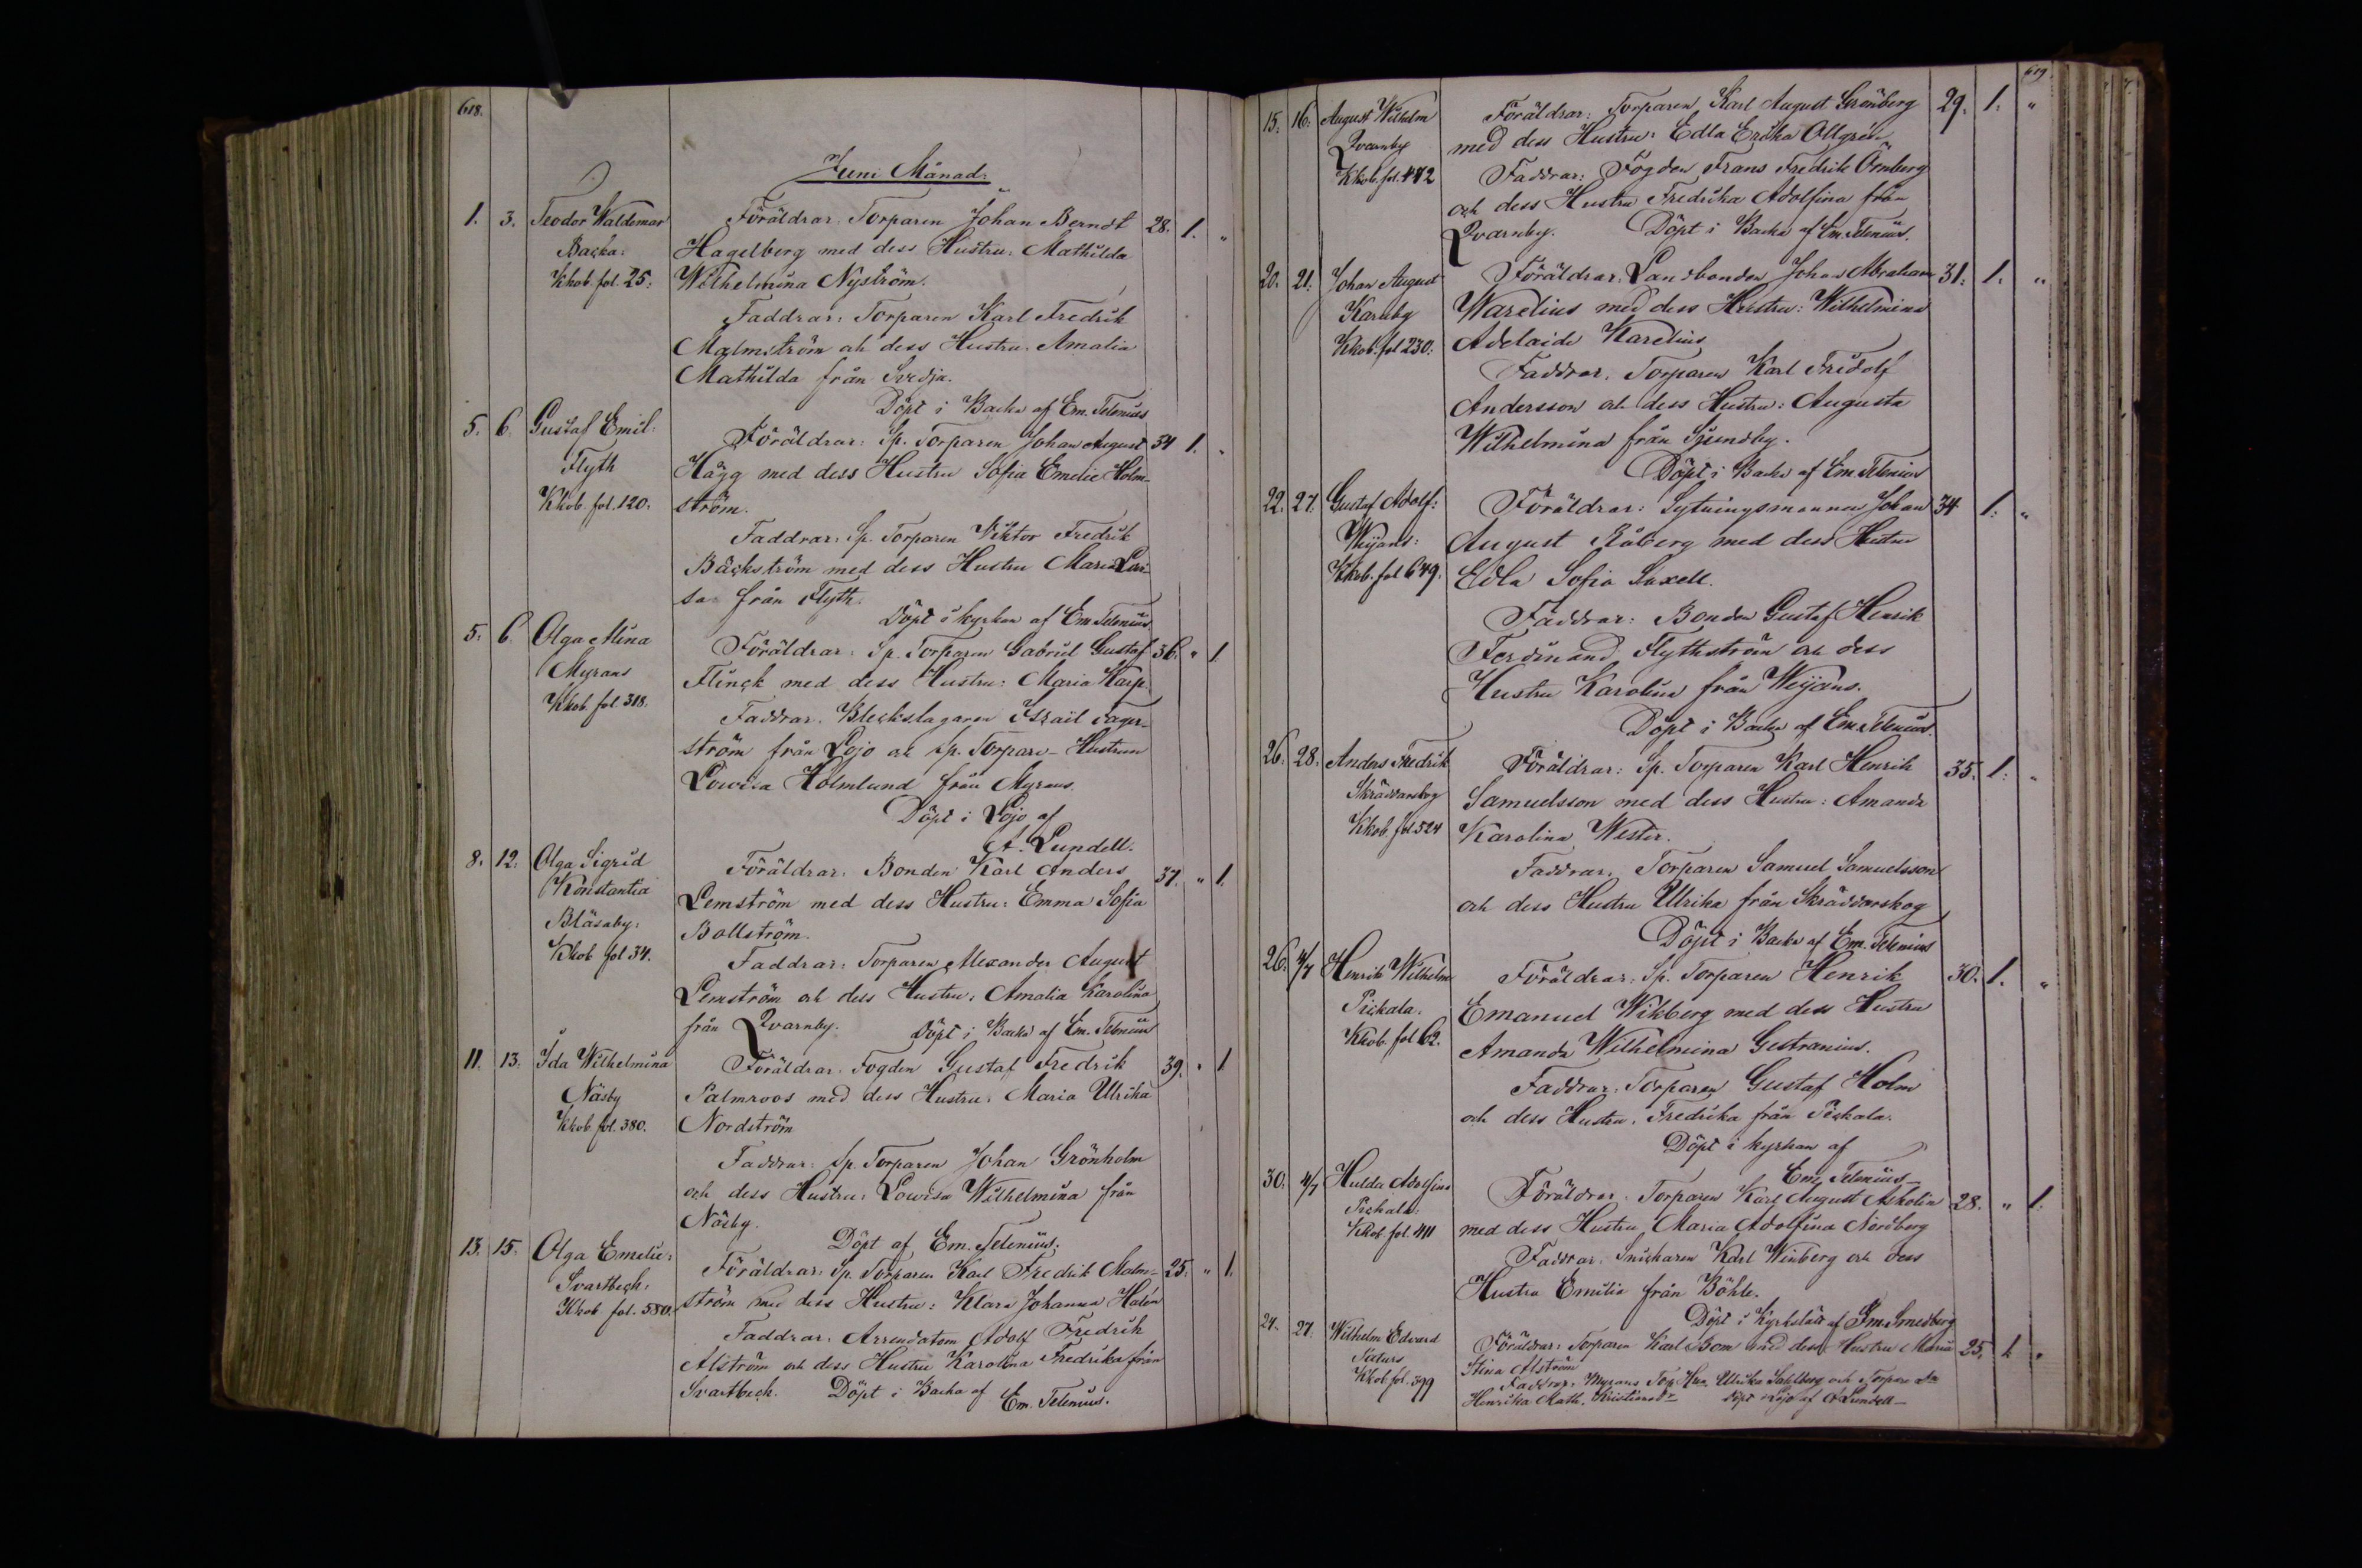 618.
Juni Månad:
1. 3. Teodor Waldemar Föräldrar: Torparen Johan Berndt 28. 1. "
Backa: Hagelberg med dess Hustru: Mathilda
Kkob. fol. 25: Wilhelmina Nyström.
Faddrar: Torparen Karl Fredrik
Malmström och dess Hustru: Amalia
Mathilda från Svedja.
Döpt i Backa af Em. Telenius
5. 6. Gustaf Emil: Föräldrar: Sp. Torparen Johan August 34 1. "
Flyth Hägg med dess Hustru Sofia Emelie Holm-
Kkob. fol. 120. ström.
Faddrar: Sp. Torparen Viktor Fredrik
Bäckström med dess Hustru Maria Lovi-
sa från Flyth.
Döpt i kyrkan af Em. Telenius
5. 6. Olga Alina Föräldrar: Sp. Torparen Gabriel Gustaf 36. " 1.
Myrans Flinck med dess Hustru: Maria Karp.
Kkob. fol. 318. Faddrar: Bleckslagaren Israil Fager-
ström från Lojo och Sp. Torpare-Hustrun
Lowisa Holmlund från Myrans.
Döpt i Lojo af
A. Lundell.
8. 12. Olga Sigrid Föräldrar: Bonden Karl Anders 37. " 1.
Konstantia Lemström med dess Hustru: Emma Sofia
Bläsaby: Bollström.
Kkob fol 34. Faddrar: Torparen Alexander August
Lemström och dess Hustru: Amalia Karolina
från Qvarnby. Döpt i Backa af Em. Telenius
11. 13. Ida Wilhelmina Föräldrar: Fogden Gustaf Fredrik 39. " 1
Näsby Palmroos med dess Hustru: Maria Ulrika
Kkob fol. 380. Nordström
Faddrar: Sp. Torparen Johan Grönholm
och dess Hustru: Lowisa Wilhelmina från
Näsby.
Döpt af Em. Telenius.
13. 15. Olga Emelie: Föräldrar: Sp. Torparen Karl Fredrik Malm- 25. " 1.
Svartbeck: ström med dess Hustru: Klara Johanna Halén
Kkob fol. 580. Faddrar: Arrendatorn Adolf Fredrik
Alström och dess Hustru Karolina Fredrika från
Svartbeck. Döpt i Backa af Em. Telenius.
619.
15. 16. August Wilhelm Föräldrar: Torparen Karl August Grönberg 29. 1. "
Qvarnby med dess Hustru: Edla Erika Ollgrén
Kkob. fol. 472 Faddrar: Fogden Frans Fredrik Örnberg
och dess Hustru Fredrika Adolfina från
Qvarnby. Döpt i Backa af Em. Telenius.
20. 21. Johan August Föräldrar: Landbonden Johan Abraham 31. 1. "
Karnby Warelius med dess Hustru: Wilhelmina
Kkob. fol 230: Adelaide Karelius
Faddrar: Torparen Karl Fridolf
Andersson och dess Hustru: Augusta
Wilhelmina från Sjundby.
Döpt i Backa af Em. Telenius
22. 27. Gustaf Adolf: Föräldrar: Sytningsmannen Johan 34 1. "
Weijans: August Råberg med dess Hustru
Kkob. fol 649. Edla Sofia Saxell.
Faddrar: Bonden Gustaf Henrik
Ferdinand Flythström och dess
Hustru Karolina från Weijans.
Döpt i Backa af Em. Telenius.
26. 28. Anders Fredrik Föräldrar: Sp. Torparen Karl Henrik 35. 1. "
Skräddarskog Samuelsson med dess Hustru: Amanda
Kkob. fol 524 Karolina Wester.
Faddrar: Torparen Samuel Samuelsson
och dess Hustru Ulrika från Skräddarskog
Döpt i Backa af Em. Telenius
26. 4/7 Henrik Wilhelm Föräldrar: Sp. Torparen Henrik 30. 1. "
Pickala. Emanuel Wikberg med dess Hustru
Kkob. fol 62. Amanda Wilhelmina Gestranius.
Faddrar: Torparen Gustaf Holm
och dess Hustru: Fredrika från Pickala.
Döpt i kyrkan af
Em. Telenius
30. 4/7 Hulda Adolfina Föräldrar: Torparen Karl August Askolin 28. " 1.
Pickala: med dess Hustru Maria Adolfina Nordberg
Kkob. fol. 411 Faddrar: Snickaren Karl Winberg och dess
Hustru Emilia från Böhle.
Döpt i Kyrkslätt af Smedberg
24. 27. Wilhelm Edvard Föräldrar: Torparen Karl Bom med dess Hustru Maria 25. 1. "
Stina Alström
Kkob fol. 399 Faddrar: Myrans Ulrika Sahlberg och Torpare
Henrika Math. Döpt i Lojo af A Lundell